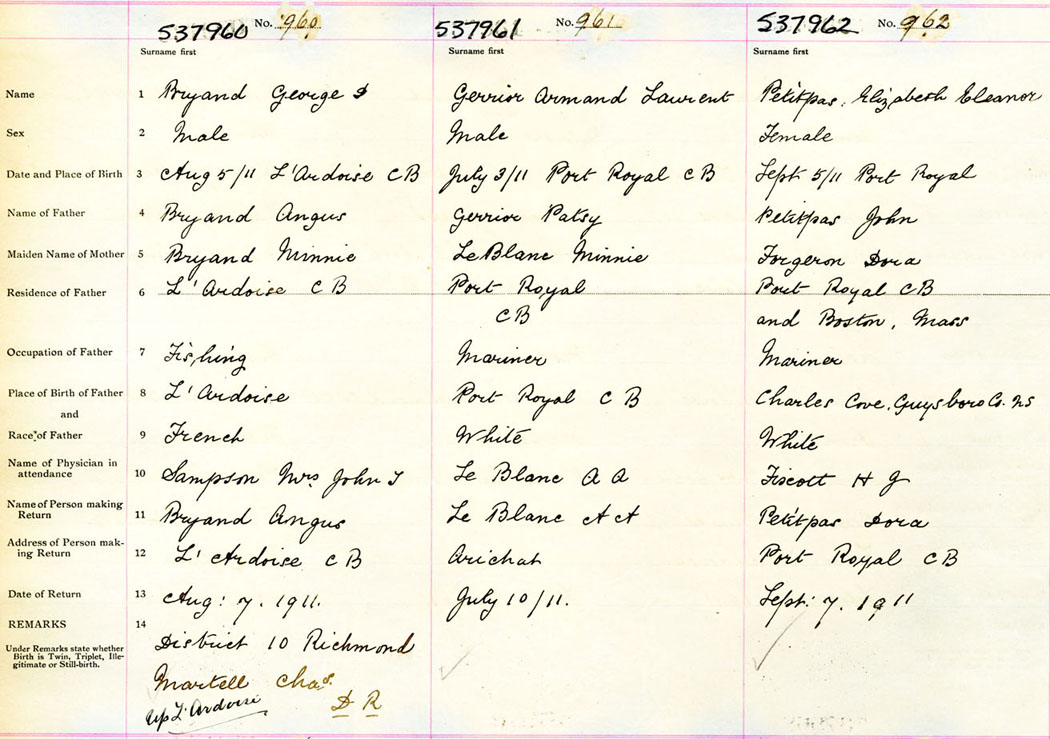 537960 No. 960 537961 No. 961 537962 No. 962
Surname first Surname first Surname first
Name 1 Bryand George S Gerrior Armand Laurent Petitpas, Elizabeth Eleanor
Sex 2 Male Male Female
Date and Place of Birth 3 Aug 5/11 L'Ardoise C B July 3/11 Port Royal C B Sept 5/11 Port Royal
Name of Father 4 Bryand Angus Gerrior Patsy Petitpas John
Maiden Name of Mother 5 Bryand Minnie LeBlanc Minnie Forgeron Dora
Residence of Father 6 L'Ardoise C B Port Royal Port Royal CB
C B and Boston, Mass
Occupation of Father 7 Fishing Mariner Mariner
Place of Birth of Father 8 L'Ardoise Port Royal C B Charles Cove, Guysboro Co. NS
and
Race of Father 9 French White White
Name of Physician in
attendance 10 Sampson Mrs John J Le Blanc A A Fiscott H J
Name of Person making
Return 11 Bryand Angus Le Blanc A A Petitpas Dora
Address of Person mak-
ing Return 12 L'Ardoise C B Arichat Port Royal CB
Date of Return 13 Aug: 7. 1911. July 10/11. Sept: 7. 1911
REMARKS 14
Under Remarks state whether
Birth is Twin, Triplet, Ille-
gitimate or Still-birth.
District 10 Richmond
Martell Chas.
D R
up L'Ardoise